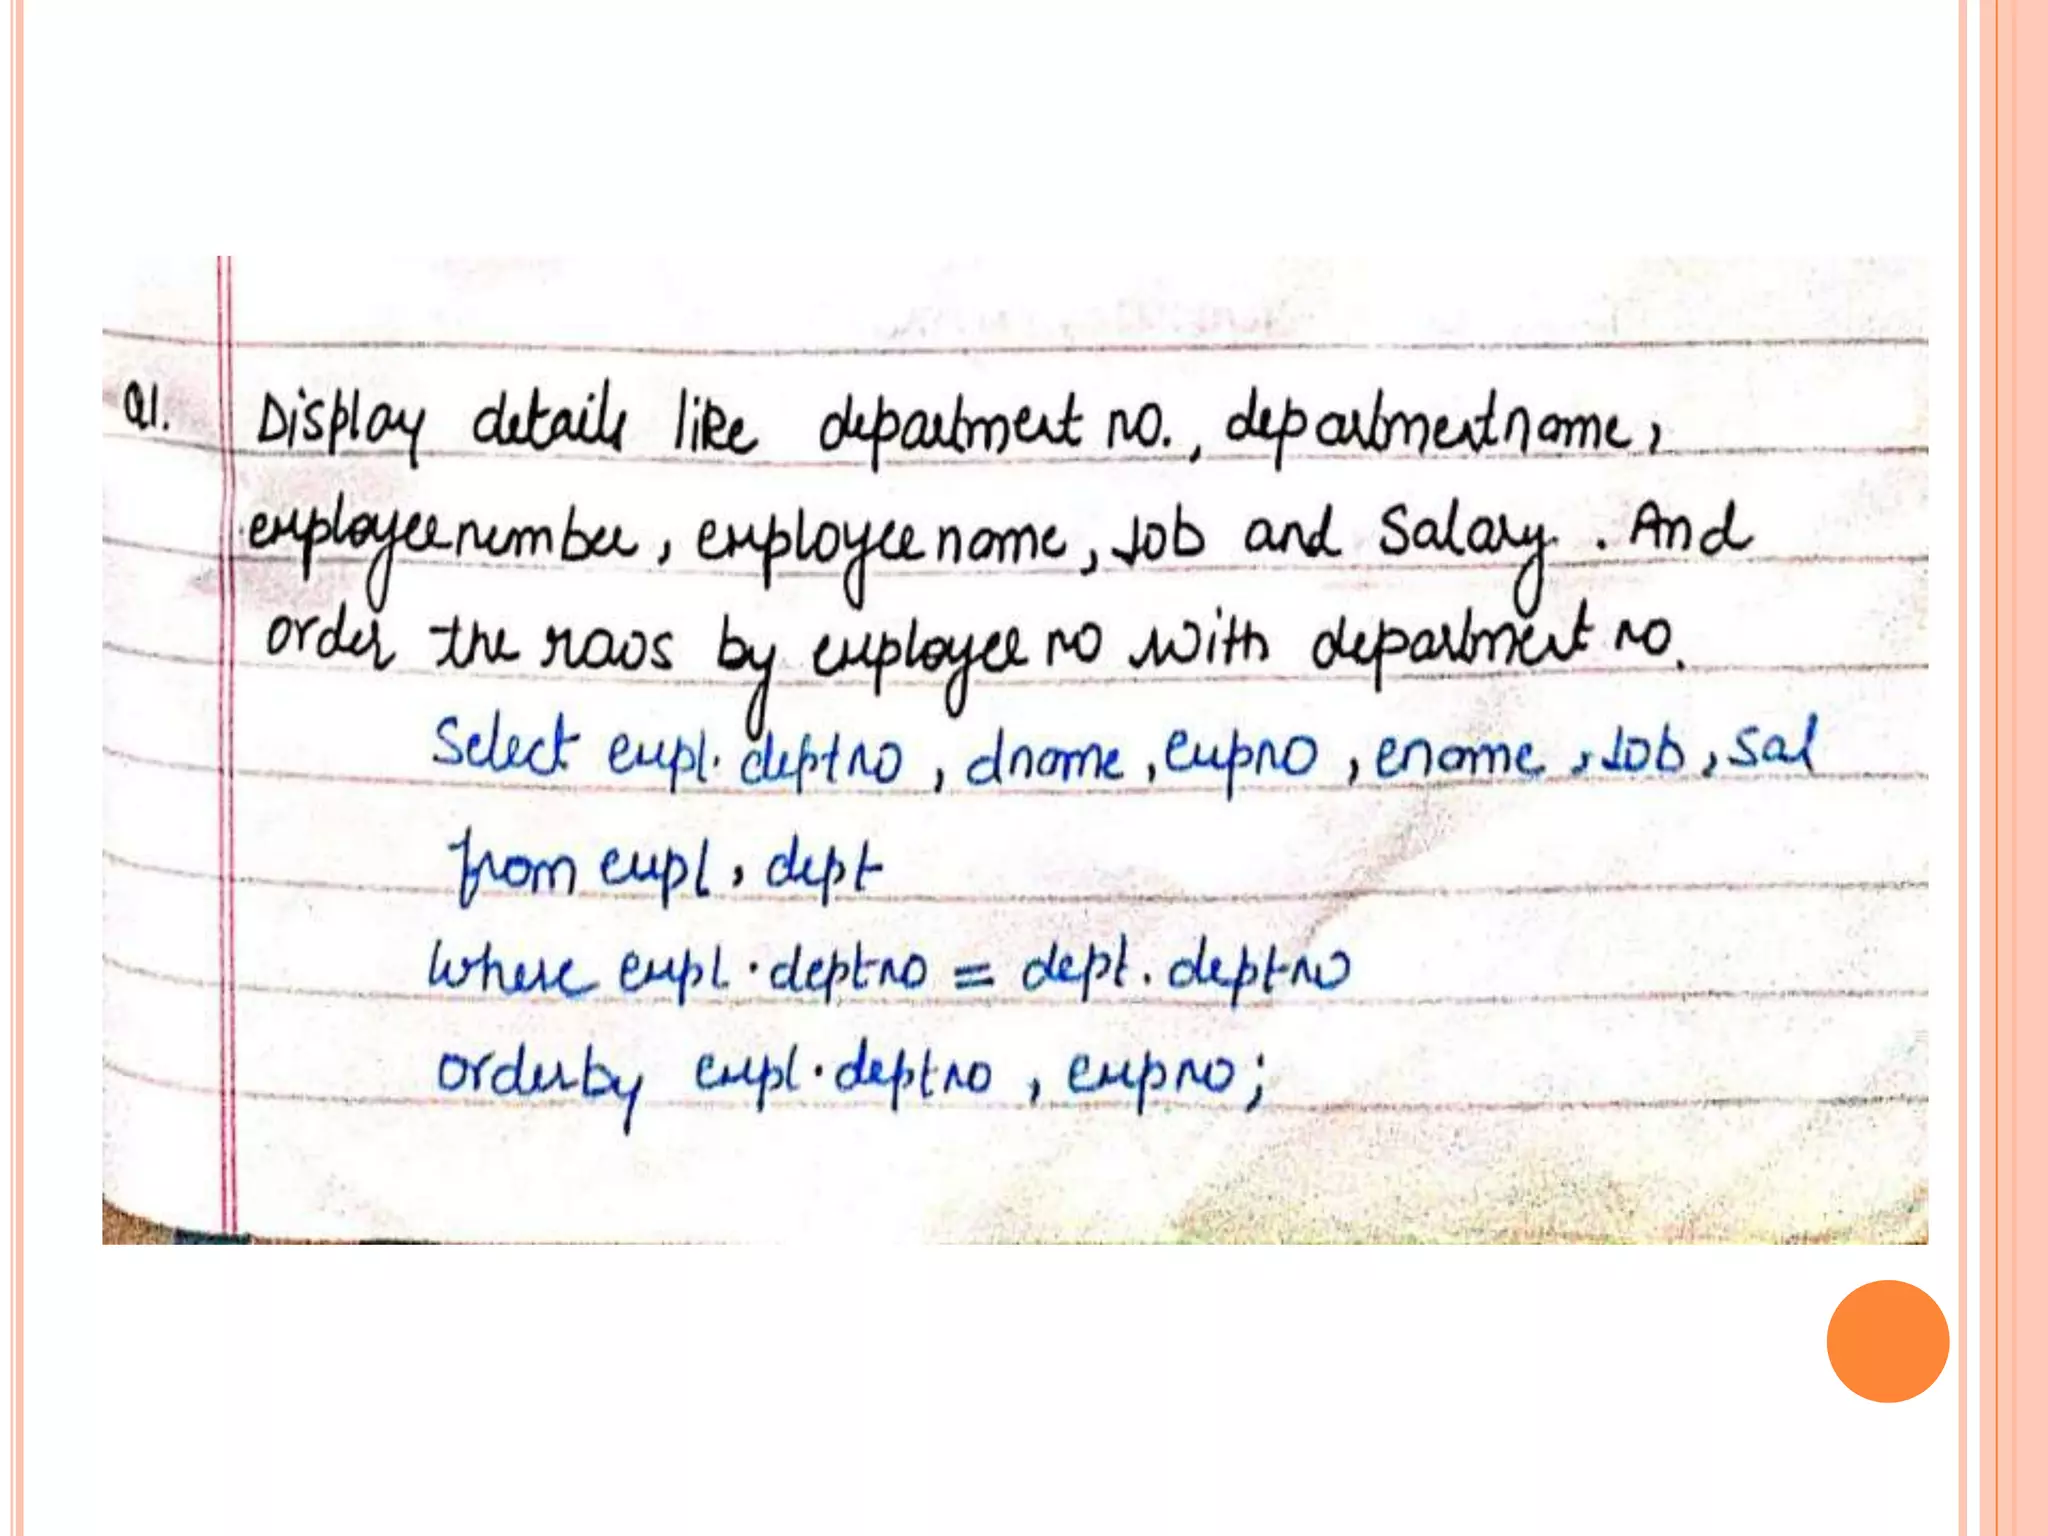 Q1. Display details like department no., departmentname,
employeenumber, employeename, Job and Salary. And
order the raos by employee no with department no.
Select empl.deptno, dname, empno, ename, Job, Sal
from empl, dept
where empl.deptno = dept.deptno
orderby empl.deptno, empno;